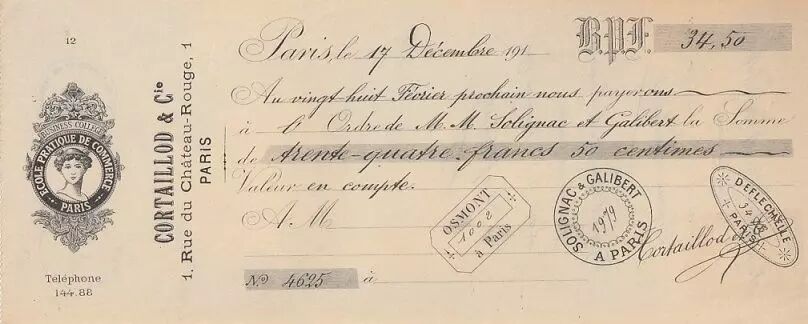 12
BUSINESS COLLEGE
ECOLE PRATIQUE DE COMMERCE
PARIS
Téléphone
144.88
CORTAILLOD & Cie
1, Rue du Château-Rouge, 1
PARIS
Paris, le 17 Décembre 191
B.P.F. 34,50
Au vingt huit Février prochain nous payerons
à l' Ordre de M.M. Solignac et Galibert la Somme
de trente-quatre francs 50 centimes
Valeur en compte.
A M
OSMONT
1002
à Paris
SOLIGNAC & GALIBERT
1979
A PARIS
DEFLECHELLE
PARIS
Cortaillod
No 4625 à